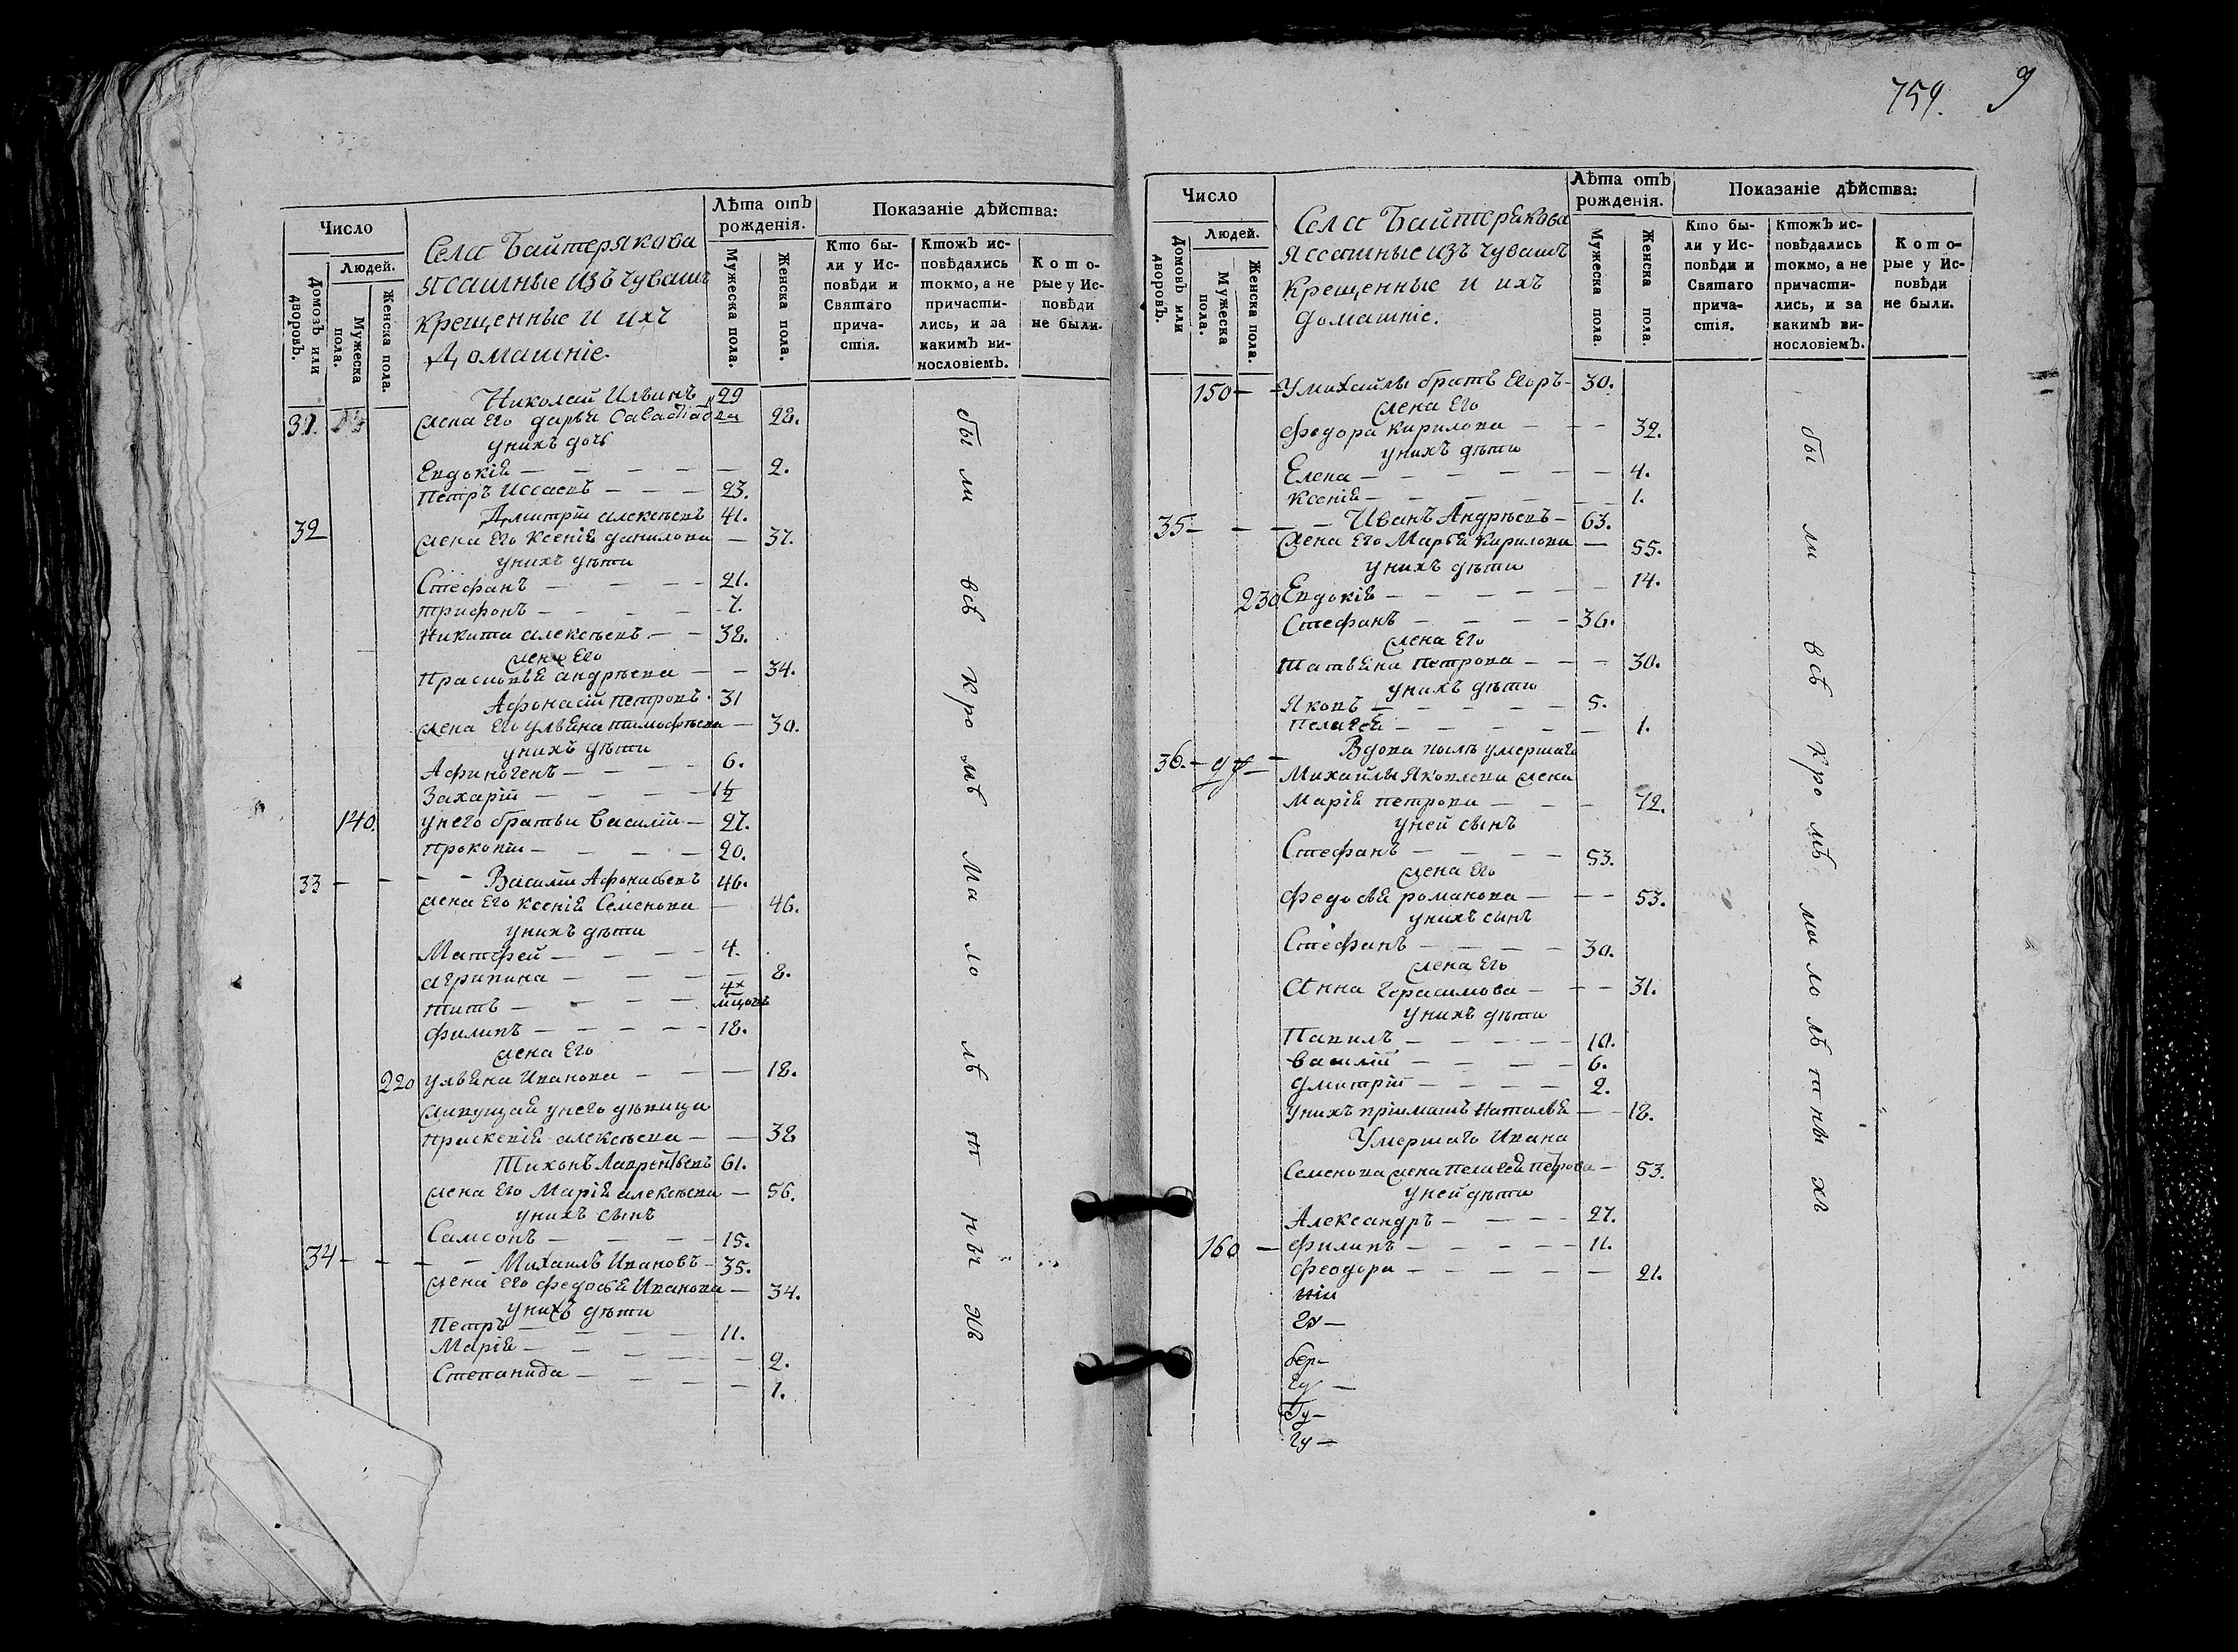 Число
Людей.
Домовъ или дворовъ.
Мужеска пола.
Женска пола.
Села Байтерякова
ясашные изъ чувашъ
крещенные и ихъ
Домашніе.
Лѣта отъ рожденія.
Мужеска пола.
Женска пола.
Показаніе дѣйства:
Кто были у Исповѣди и Святаго причастія.
Ктожъ исповѣдались токмо, а не причастились, и за какимъ винословіемъ.
Которые у Исповѣди не были.
Николай Ильинъ 29
31. жена Его дарья 28.
унихъ дочь
Евдокія — — — — — 2.
Петръ Иссаевъ — — — 23.
Дмитрїй алексѣевъ 41.
32 жена Его Ксенія данилова — 37.
унихъ дѣти
Стефанъ — — — — 21.
трифонъ — — — — 7.
Никита алексѣевъ — — 38.
жена Его
Прасковья андрѣева — — 34.
Афонасій петровъ 31
жена Его ульяна тимофѣева — 30.
унихъ дѣти
Афиногенъ — — — — 6.
Захарїй — — — — 1½
140. унего братьи Василїй — 27.
прокопїй — — — — 20.
33 — — — Василїй Афонасьевъ 46.
жена Его ксенія Семенова — 46.
унихъ дѣти
Матфей — — — — 4.
агрипина — — — — 8.
титъ — — — — 4х мцовъ
филипъ — — — — — 18.
жена Его
220 ульяна Иванова — — — 18.
живущая унего дѣвица
праскевія алексѣева — — 38
Тихонъ Лаврентьевъ 61.
жена Его Марія алексѣева — 56.
унихъ сынъ
Самсонъ — — — — 15.
34 — — — — Михаилъ Ивановъ — 35.
жена его федосья Иванова — 34.
унихъ дѣти
Петръ — — — — — 11.
Марія — — — — — 2.
Степанида — — — — 1.
были всѣ кромѣ малолѣтнѣхъ
759. 9
Число
Людей.
Домовъ или дворовъ.
Мужеска пола.
Женска пола.
Села Байтерякова
Ясашные изъ чувашъ
крещенные и ихъ
домашніе.
Лѣта отъ рожденія.
Мужеска пола.
Женска пола.
Показаніе дѣйства:
Кто были у Исповѣди и Святаго причастія.
Ктожъ исповѣдались токмо, а не причастились, и за какимъ винословіемъ.
Которые у Исповѣди не были.
150 — У михайлы братъ Егоръ — 30.
жена Его
федора кирилова — — — 32.
унихъ дѣти
Елена — — — — — 4.
Ксенія — — — — — 1.
35 — — — — Иванъ Андрѣевъ — 63.
жена его Марья Кирилова — 55.
унихъ дѣти
230 Евдокія — — — — — 14.
Стефанъ — — — — 36.
жена Его
татьяна петрова — — — 30.
унихъ дѣти
Яковъ — — — — — 5.
пелагея — — — — — 1.
36. — — Вдова умершаго
Михайлы Яковлева жена
Марія петрова — — — 72.
уней сынъ
Стефанъ — — — — 53.
жена Его
федосья романова — — — 53.
унихъ сынъ
Стефанъ — — — — 30.
жена Его
Анна Герасимова — — — 31.
унихъ дѣти
Павилъ — — — — — 10.
Василїй — — — — 6.
дмитрїй — — — — 2.
унихъ прїимашъ наталья — — 18.
Умершаго Ивана
Семенова жена пелагея петрова — 53.
уней дѣти
Александръ — — — — 27.
160 — филипъ — — — — — 11.
феодора — — — — — 21.
были всѣ кромѣ малолѣтнѣхъ